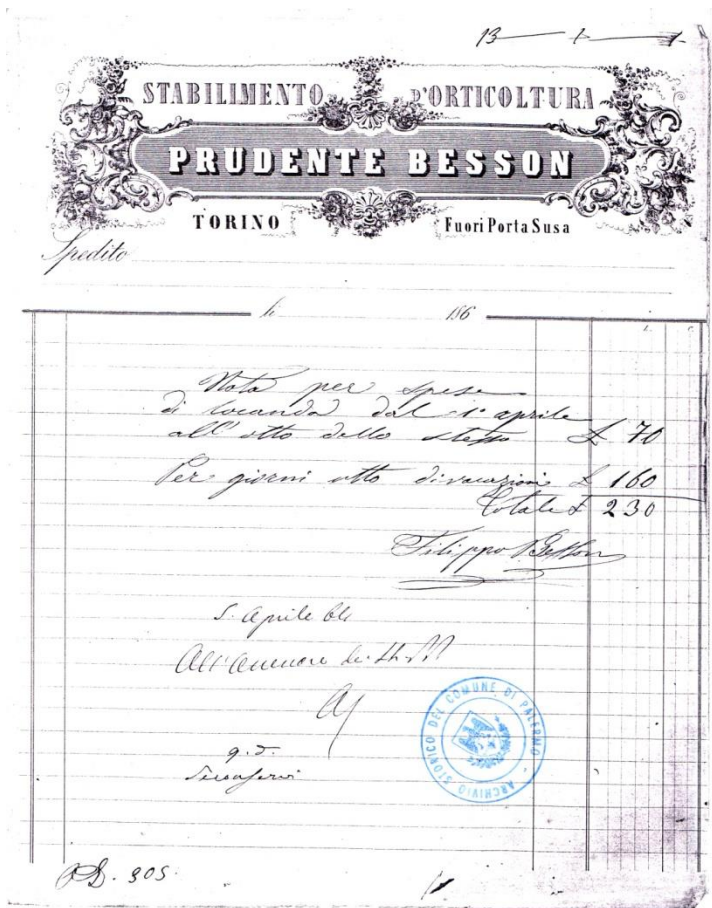 13
STABILIMENTO D'ORTICOLTURA
PRUDENTE BESSON
TORINO Fuori Porta Susa
Spedito
li 186
Nota per spese
di locanda dal 1° aprile
all'otto dello stesso £ 70
Per giorni otto di vacazioni £ 160
Totale £ 230
Filippo Besson
Aprile
ARCHIVIO STORICO DEL COMUNE DI PALERMO
305